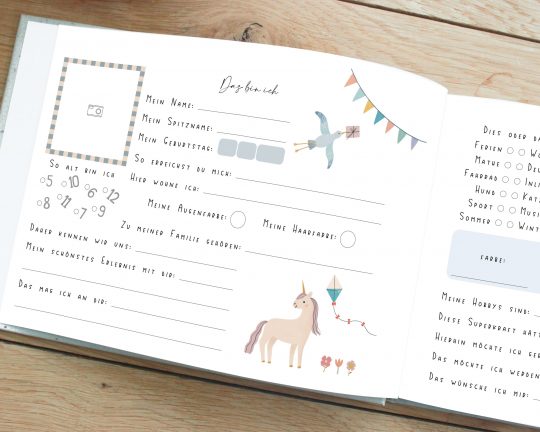 Das bin ich
Mein Name:
Mein Spitzname:
Mein Geburtstag:
So erreichst du mich:
So alt bin ich
Hier wohne ich:
5 10 6 12
8 11 7 9
Meine Augenfarbe:
Meine Haarfarbe:
Zu meiner Familie gehören:
Daher kennen wir uns:
Mein schönstes Erlebnis mit dir:
Das mag ich an dir:
Dies oder da
Ferien
Mathe
Fahrrad
Hund
Sport
Sommer
Farbe:
Meine Hobbys sind:
Diese Superkraft hätt
Hierhin möchte ich ger
Das möchte ich werden
Das wünsche ich mir: